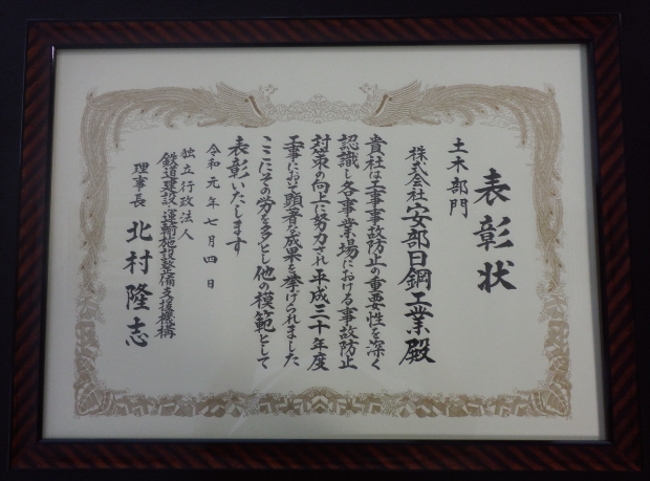 表彰状
土木部門
株式会社安部日鋼工業殿
貴社は工事事故防止の重要性を深く
認識し各事業場における事故防止
対策の向上に努力され平成三十年度
工事において顕著な成果を挙げられました
ここにその労を多とし他の模範として
表彰いたします
令和元年七月四日
独立行政法人
鉄道建設・運輸施設整備支援機構
理事長 北村隆志